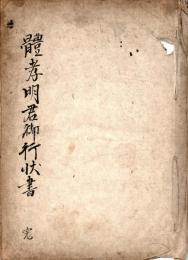 體孝明君御行状書
完